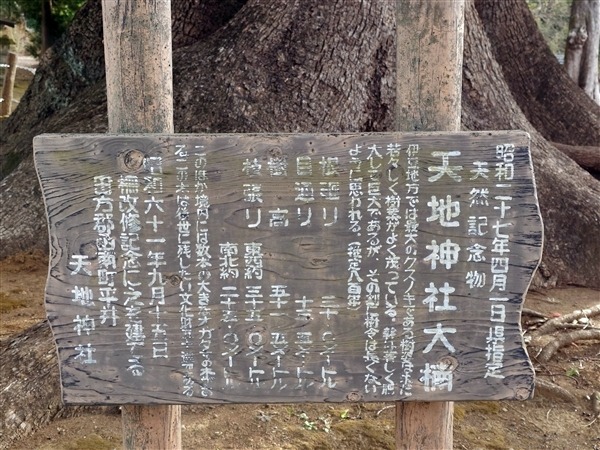 昭和二十七年四月一日県指定
天然記念物
天地神社大楠
伊豆地方では最大のクスノキである樹姿は未だ
若々しく樹葉がよく茂っている。幹は著しく肥
大して巨大であるが、その割に樹令は長くない
ように思われる。(推定八百年)
根廻り 三十・〇メートル
目通り 十三・五メートル
樹高 五十一・五メートル
枝張り 東西約 三十五・〇メートル
南北約 二十五・〇メートル
このほか境内には数本の大きなクスの木があ
る。この木は後世に残したい文化財
昭和六十一年九月十五日
橋改修記念にこれを建てる
田方郡函南町平井
天地神社